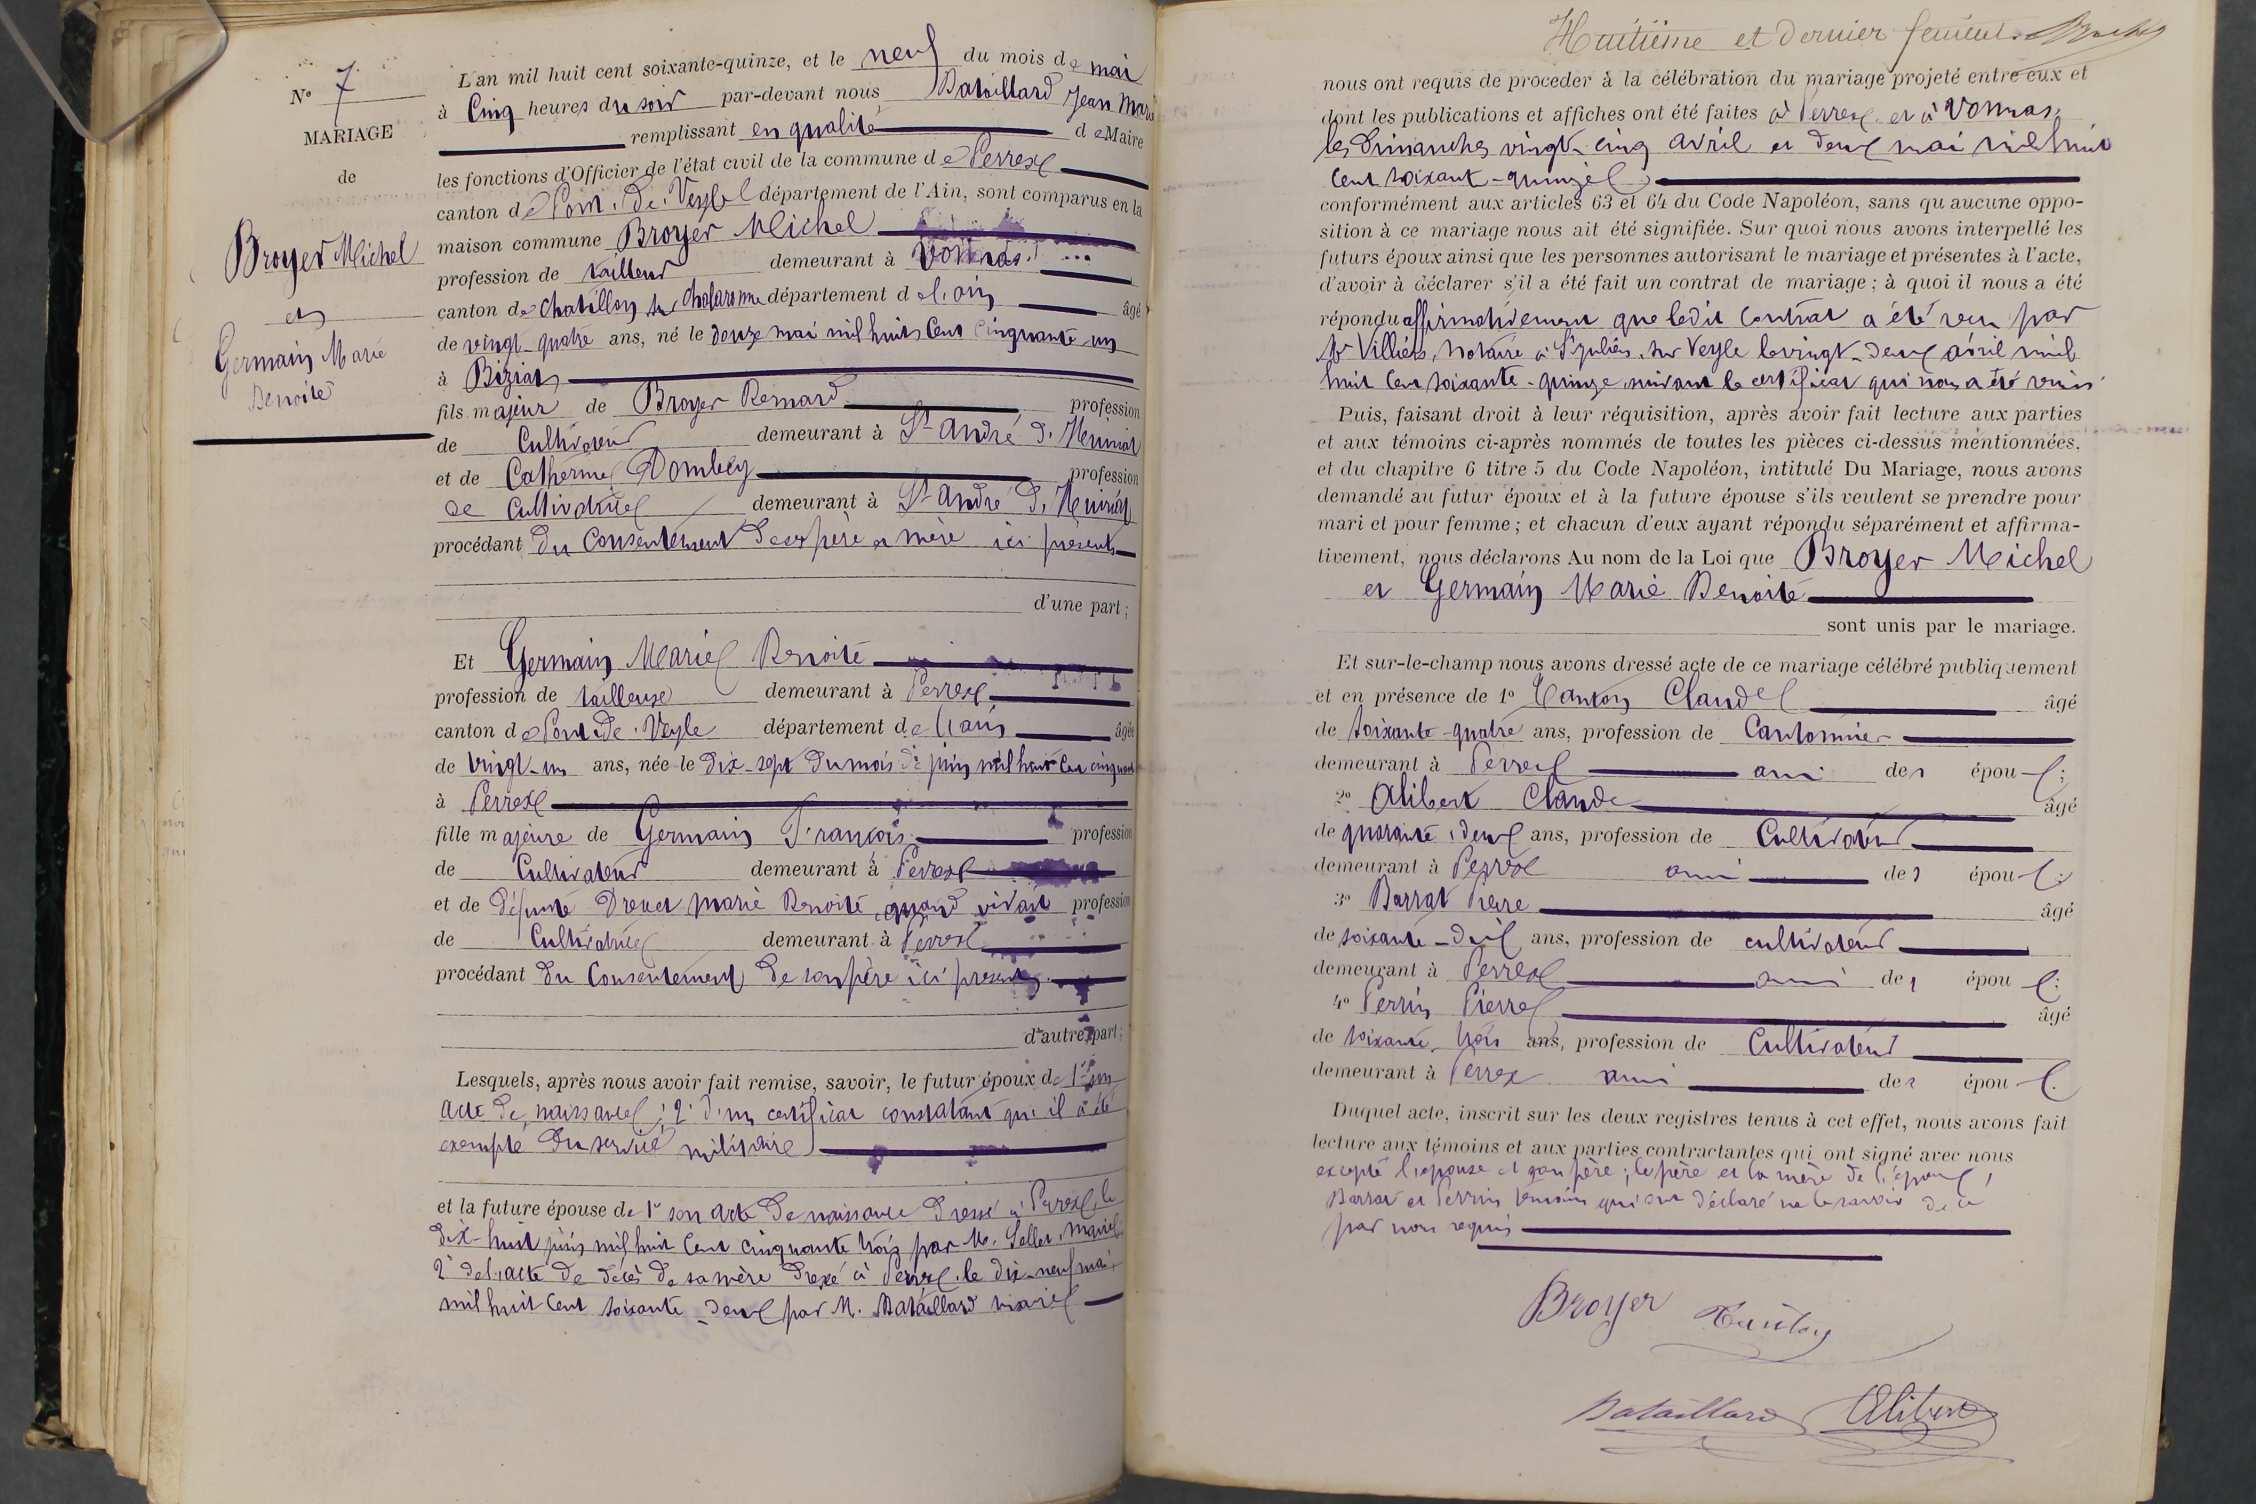 N° 7
MARIAGE
de
Broyer Michel
et
Germain Marie
Benoite
L'an mil huit cent soixante-quinze, et le neuf du mois de mai
à Cinq heures du soir par-devant nous Bataillard Jean Marie
remplissant en qualité de Maire
les fonctions d'Officier de l'état civil de la commune de Perrex
canton de Pont. de. Veyle département de l'Ain, sont comparus en la
maison commune Broyer Michel
profession de tailleur demeurant à Vonnas.
canton de Chatillon sur Chalaronne département de l'ain âgé
de vingt-quatre ans, né le douze mai mil huit Cent cinquante un
à Biziat
fils majeur de Broyer Bernard profession
de Cultivateur demeurant à St André d'Huiriat
et de Catherine Dombey profession
de Cultivatrice demeurant à St André d'Huiriat
procédant du Consentement de ses père et mère ici présents
d'une part;
Et Germain Marie Benoite
profession de tailleuse demeurant à Perrex
canton de Pont. de. Veyle département de l'ain âgée
de vingt-un ans, née le dix-sept du mois de juin mil huit Cent cinquante
à Perrex
fille majeure de Germain François profession
de Cultivateur demeurant à Perrex
et de défunte Drevet marie Benoite, quand vivait profession
de Cultivatrice demeurant à Perrex
procédant du Consentement de son père ici présent.
d'autre part;
Lesquels, après nous avoir fait remise, savoir, le futur époux de 1° son
acte de naissance; 2° d'un certificat constatant qu'il a été
exempté du service militaire
et la future épouse de 1° son acte de naissance dressé à Perrex, le
dix-huit juin mil huit Cent cinquante trois par M. Sellet, maire
2° de l'acte de décès de sa mère dressé à Perrex, le dix-neuf mai
mil huit Cent soixante-deux par M. Bataillard maire
Huitième et dernier feuillet.
nous ont requis de procéder à la célébration du mariage projeté entre eux et
dont les publications et affiches ont été faites à Perrex et à Vonnas,
les dimanches vingt-cinq avril et deux mai mil huit
Cent soixante-quinze
conformément aux articles 63 et 64 du Code Napoléon, sans qu'aucune oppo-
sition à ce mariage nous ait été signifiée. Sur quoi nous avons interpellé les
futurs époux ainsi que les personnes autorisant le mariage et présentes à l'acte,
d'avoir à déclarer s'il a été fait un contrat de mariage; à quoi il nous a été
répondu affirmativement que ledit Contrat a été reçu par
Mr Villiers, Notaire à St Julien, sur Veyle le vingt-deux avril mil
huit Cent soixante-quinze, suivant le certificat qui nous a été remis
Puis, faisant droit à leur réquisition, après avoir fait lecture aux parties
et aux témoins ci-après nommés de toutes les pièces ci-dessus mentionnées,
et du chapitre 6 titre 5 du Code Napoléon, intitulé Du Mariage, nous avons
demandé au futur époux et à la future épouse s'ils veulent se prendre pour
mari et pour femme; et chacun d'eux ayant répondu séparément et affirma-
tivement, nous déclarons Au nom de la Loi que Broyer Michel
et Germain Marie Benoite
sont unis par le mariage.
Et sur-le-champ nous avons dressé acte de ce mariage célébré publiquement
et en présence de 1° Claude âgé
de soixante-quatre ans, profession de Cantonnier
demeurant à Perrex ami des époux;
2° Alibert Claude âgé
de quarante, deux ans, profession de Cultivateur
demeurant à Perrex ami des époux;
3° Barrat Pierre âgé
de soixante-dix ans, profession de cultivateur
demeurant à Perrex ami des époux;
4° Perrin Pierre âgé
de soixante-trois ans, profession de Cultivateur
demeurant à Perrex ami des époux.
Duquel acte, inscrit sur les deux registres tenus à cet effet, nous avons fait
lecture aux témoins et aux parties contractantes qui ont signé avec nous
excepté l'épouse et son père; le père et la mère de l'époux,
Barrat et Perrin témoins qui ont déclaré ne le savoir de ce
par nous requis
Broyer
Bataillard Alibert